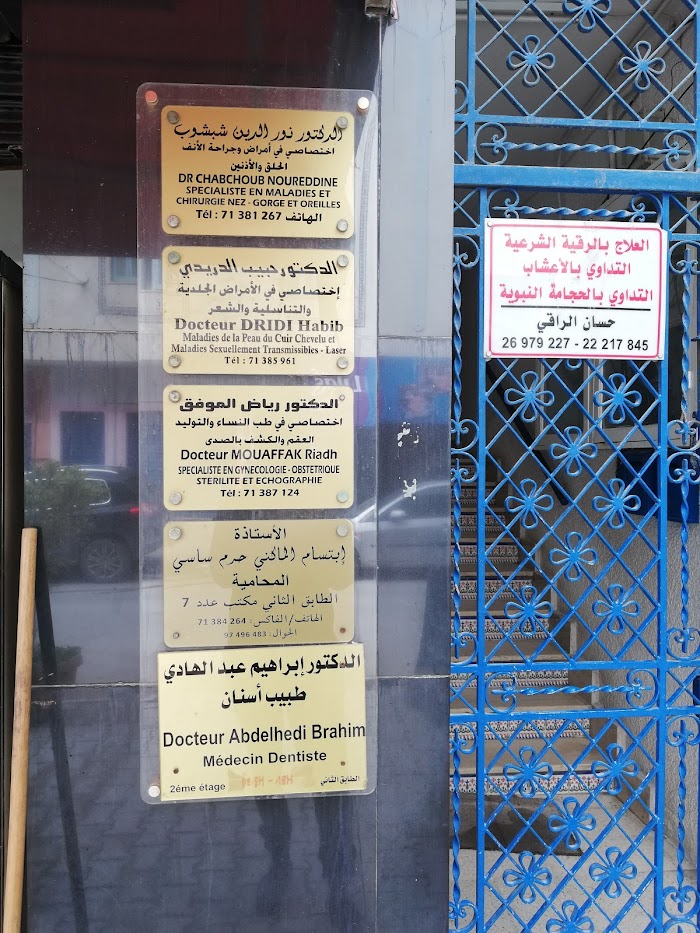 الدكتور نور الدين شبشوب
اختصاصي في أمراض وجراحة الأنف
الحلق والأذنين
DR CHABCHOUB NOUREDDINE
SPECIALISTE EN MALADIES ET
CHIRURGIE NEZ - GORGE ET OREILLES
Tél : 71 381 267 الهاتف
الدكتور حبيب الدريدي
إختصاصي في الأمراض الجلدية
والتناسلية والشعر
Docteur DRIDI Habib
Maladies de la Peau du Cuir Chevelu et
Maladies Sexuellement Transmissibles - Laser
Tél : 71 385 961
الدكتور رياض الموفق
اختصاصي في طب النساء والتوليد
العقم والكشف بالصدى
Docteur MOUAFFAK Riadh
SPECIALISTE EN GYNECOLOGIE - OBSTETRIQUE
STERILITE ET ECHOGRAPHIE
Tél : 71 387 124
الأستاذة
إبتسام الماكني حرم ساسي
المحامية
الطابق الثاني مكتب عدد 7
الهاتف/الفاكس: 71 384 264
الجوال: 97 496 483
الدكتور إبراهيم عبد الهادي
طبيب أسنان
Docteur Abdelhedi Brahim
Médecin Dentiste
2éme étage الطابق الثاني
العلاج بالرقية الشرعية
التداوي بالأعشاب
التداوي بالحجامة النبوية
حسان الراقي
26 979 227 - 22 217 845